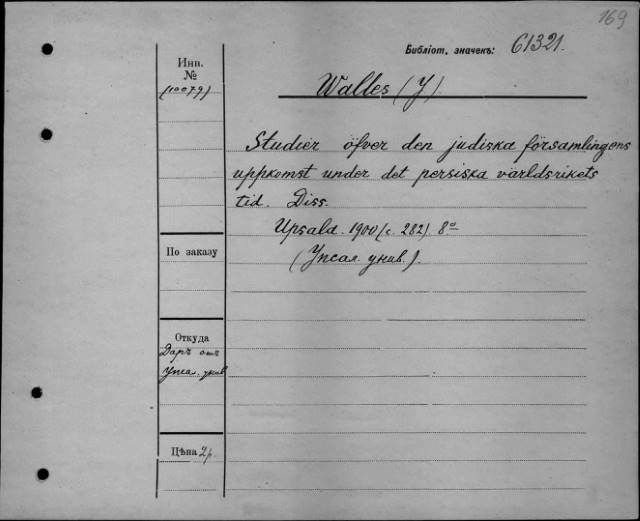 169
Библіот. значекъ: 61321.
Инв.
№
(10079)
Walles (J).
Studier öfver den judiska församlingens
uppkomst under det persiska världsrikets
tid. Diss.
Upsala. 1900 (с. 282) 8º
(Упсал. унив.).
По заказу
Откуда
Даръ отъ
Упсал. унив
Цѣна 2р.